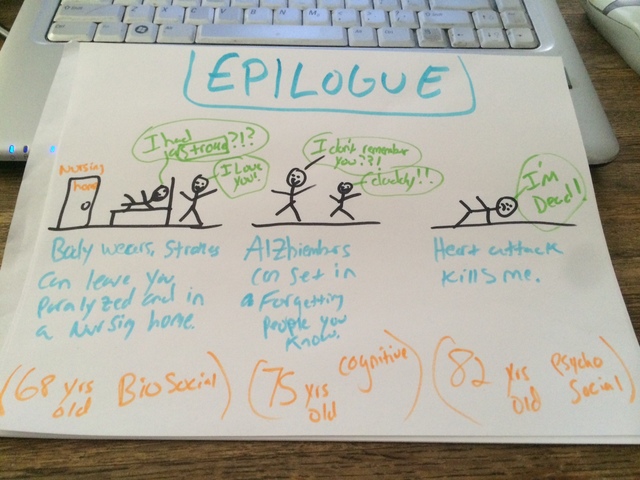 EPILOGUE
I had
a Stroke?!?
I Love
you!!
Nursing
home
I don't remember
you??!
daddy!!
I'M
Dead!!
Body wears, Strokes
Can leave you
Paralyzed and in
a Nursing home.
Alzhiembers
can set in
Forgetting
People you
Know.
Heart attack
Kills me.
(68 yrs old BioSocial)
(75 yrs old cognitive)
(82 yrs old Psycho Social)